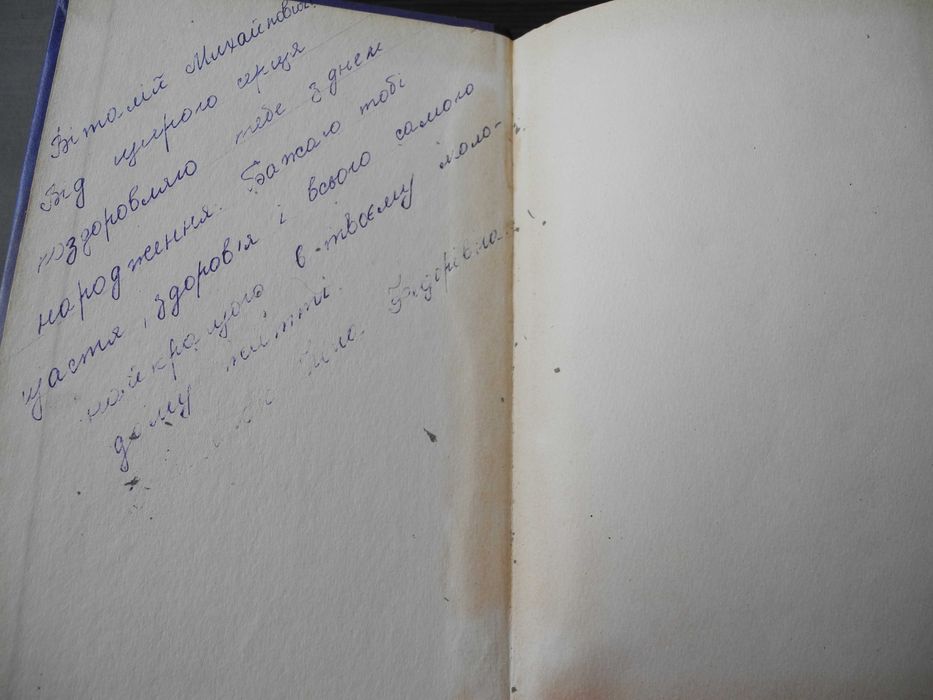 Віталій Михайлович.
Від щирого серця
поздоровляю тебе з днем
народження. Бажаю тобі
щастя, здоров'я і всього самого
найкращого в твоєму моло-
дому житті.